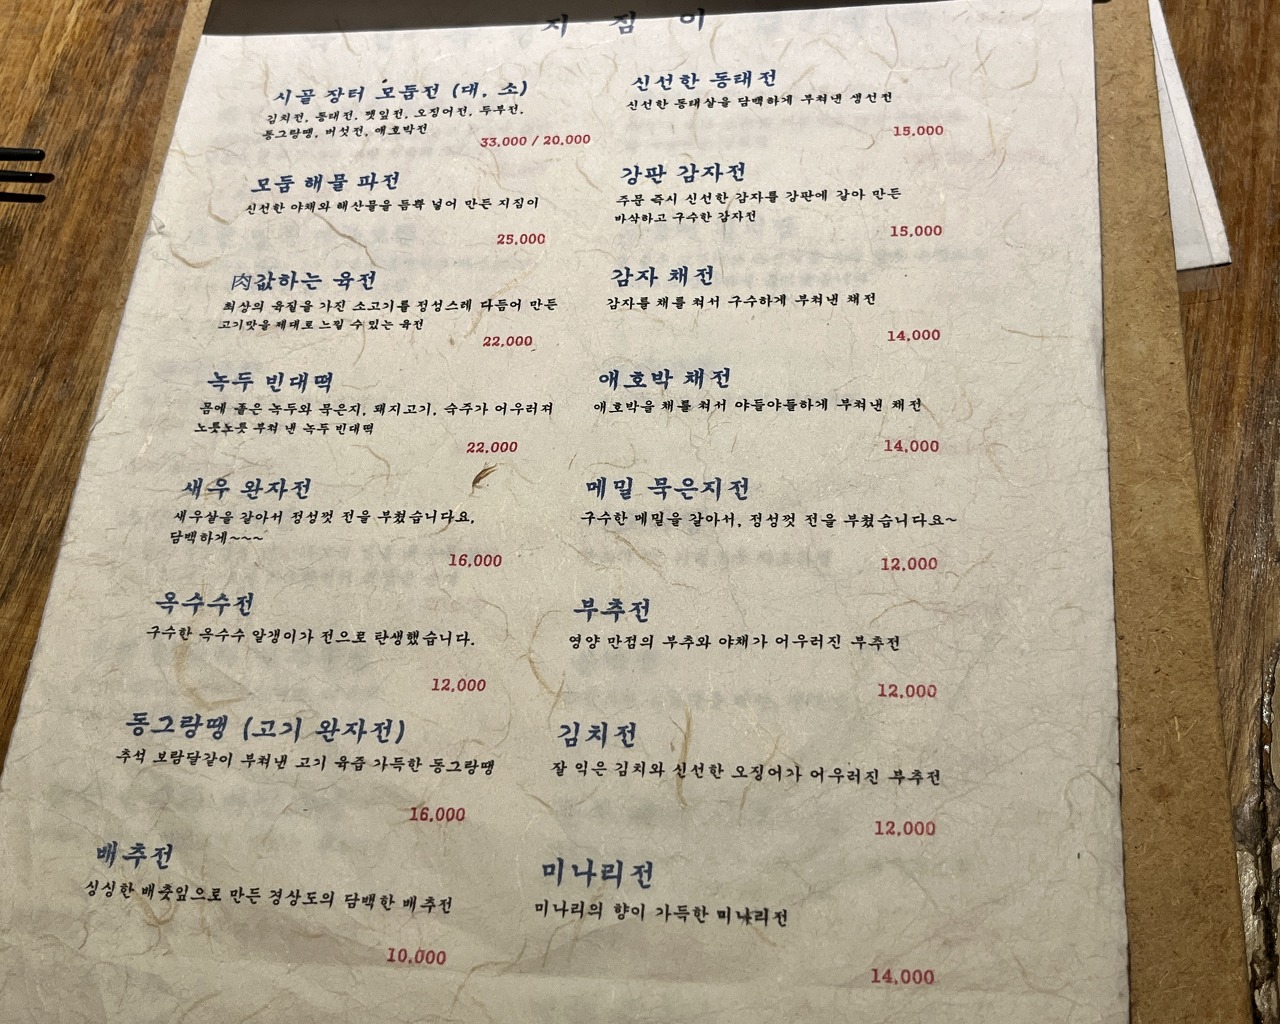 지 짐 이
시골 장터 모듬전 (대, 소)
김치전, 동태전, 깻잎전, 오징어전, 두부전,
동그랑땡, 버섯전, 애호박전
33,000 / 20,000
모듬 해물 파전
신선한 야채와 해산물을 듬뿍 넣어 만든 지짐이
25,000
肉값하는 육전
최상의 육질을 가진 소고기를 정성스레 다듬어 만든
고기맛을 제대로 느낄 수 있는 육전
22,000
녹두 빈대떡
몸에 좋은 녹두와 묵은지, 돼지고기, 숙주가 어우러져
노릇노릇 부쳐 낸 녹두 빈대떡
22,000
새우 완자전
새우살을 갈아서 정성껏 전을 부쳤습니다요,
담백하게~~~
16,000
옥수수전
구수한 옥수수 알갱이가 전으로 탄생했습니다.
12,000
동그랑땡 (고기 완자전)
추석 보람달같이 부쳐낸 고기 육즙 가득한 동그랑땡
16,000
배추전
싱싱한 배춧잎으로 만든 경상도의 담백한 배추전
10,000
신선한 동태전
신선한 동태살을 담백하게 부쳐낸 생선전
15,000
강판 감자전
주문 즉시 신선한 감자를 강판에 갈아 만든
바삭하고 구수한 감자전
15,000
감자 채전
감자를 채를 쳐서 구수하게 부쳐낸 채전
14,000
애호박 채전
애호박을 채를 쳐서 야들야들하게 부쳐낸 채전
14,000
메밀 묵은지전
구수한 메밀을 갈아서, 정성껏 전을 부쳤습니다요~
12,000
부추전
영양 만점의 부추와 야채가 어우러진 부추전
12,000
김치전
잘 익은 김치와 신선한 오징어가 어우러진 부추전
12,000
미나리전
미나리의 향이 가득한 미나리전
14,000